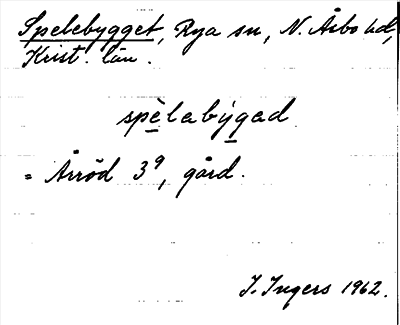 Spelebygget, Rya sn, N. Åsbo hd,
Krist. län.
spèlabýgad
= Årröd 3⁹, gård.
I. Ingers 1962.